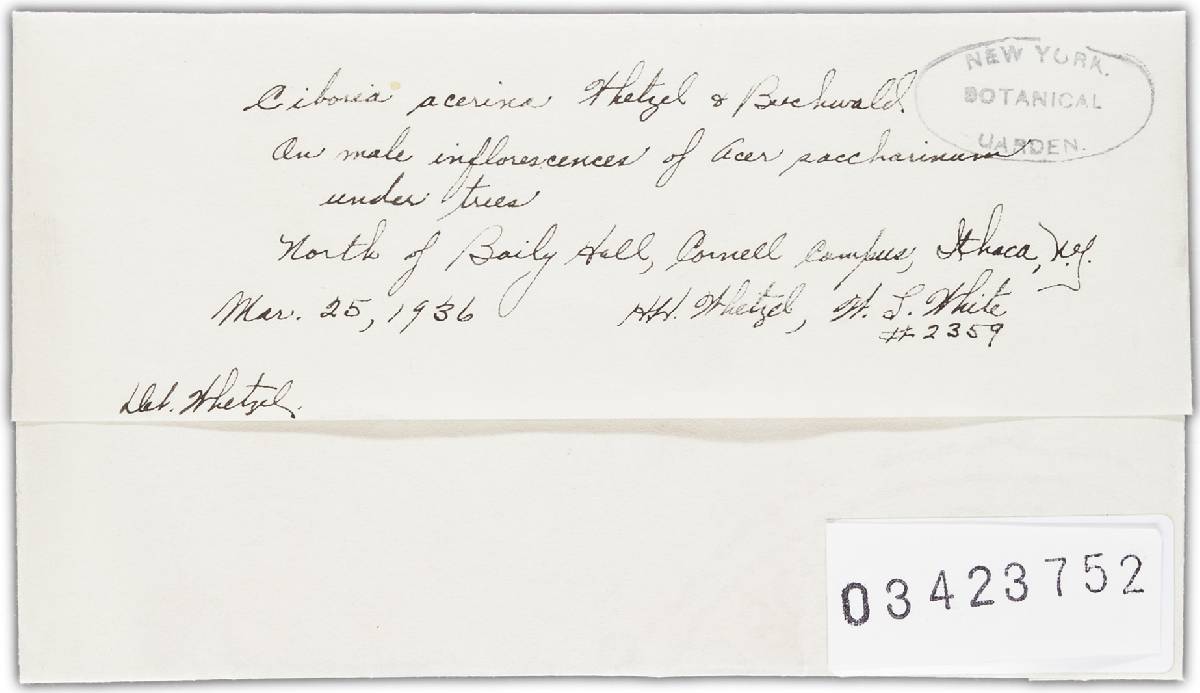 Ciboria acerina Whetzel & Buchwald.
On male inflorescences of Acer saccharinum
under trees
North of Baily Hall, Cornell Campus, Ithaca, N.Y.
Mar. 25, 1936 HH. Whetzel, W. L. White
# 2359
Det. Whetzel.
NEW YORK.
BOTANICAL
GARDEN.
03423752